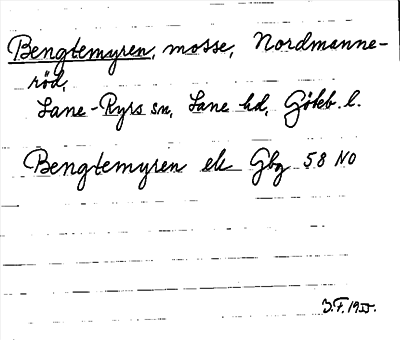 Bengtemyren, mosse, Nordmanne-
röd,
Lane-Ryrs sn, Lane hd, Göteb. l.
Bengtemyren ek Gbg 58 NO